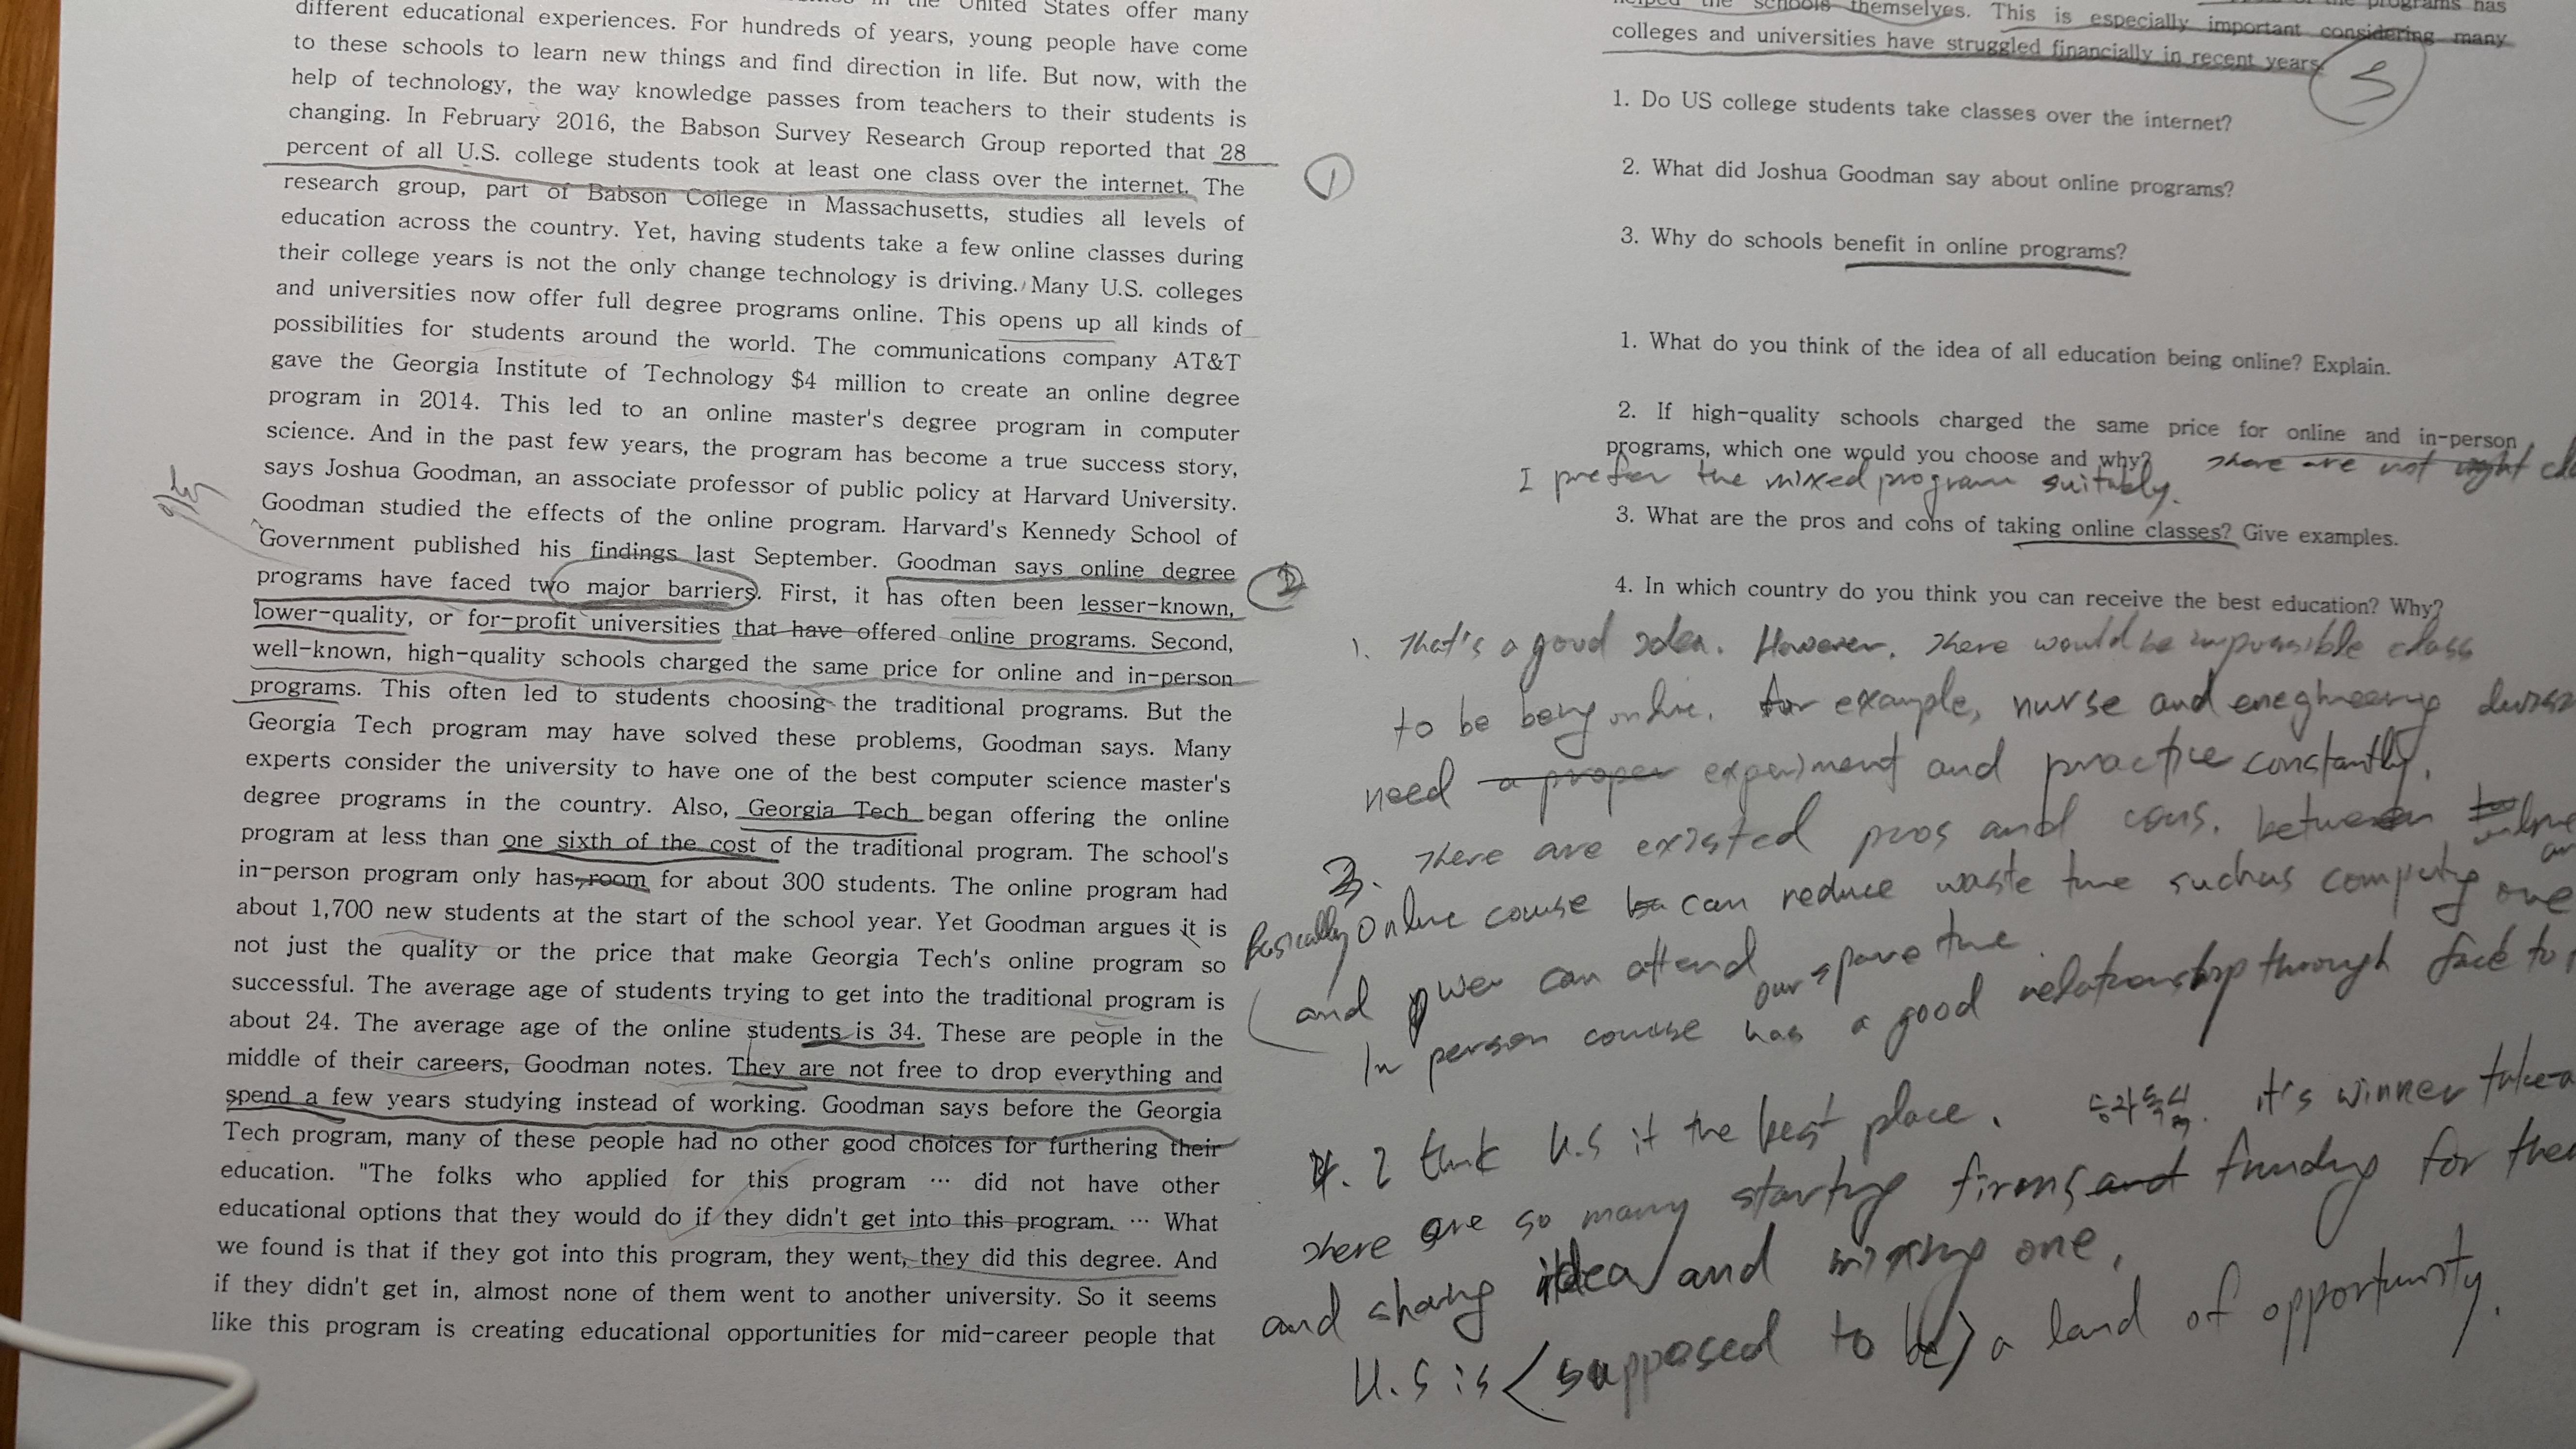 in the United States offer many
different educational experiences. For hundreds of years, young people have come
to these schools to learn new things and find direction in life. But now, with the
help of technology, the way knowledge passes from teachers to their students is
changing. In February 2016, the Babson Survey Research Group reported that 28
percent of all U.S. college students took at least one class over the internet. The
research group, part of Babson College in Massachusetts, studies all levels of
education across the country. Yet, having students take a few online classes during
their college years is not the only change technology is driving. Many U.S. colleges
and universities now offer full degree programs online. This opens up all kinds of
possibilities for students around the world. The communications company AT&T
gave the Georgia Institute of Technology $4 million to create an online degree
program in 2014. This led to an online master's degree program in computer
science. And in the past few years, the program has become a true success story,
says Joshua Goodman, an associate professor of public policy at Harvard University.
Goodman studied the effects of the online program. Harvard's Kennedy School of
Government published his findings last September. Goodman says online degree
programs have faced two major barriers. First, it has often been lesser-known,
lower-quality, or for-profit universities that have offered online programs. Second,
well-known, high-quality schools charged the same price for online and in-person
programs. This often led to students choosing the traditional programs. But the
Georgia Tech program may have solved these problems, Goodman says. Many
experts consider the university to have one of the best computer science master's
degree programs in the country. Also, Georgia Tech began offering the online
program at less than one sixth of the cost of the traditional program. The school's
in-person program only has room for about 300 students. The online program had
about 1,700 new students at the start of the school year. Yet Goodman argues it is
not just the quality or the price that make Georgia Tech's online program so
successful. The average age of students trying to get into the traditional program is
about 24. The average age of the online students is 34. These are people in the
middle of their careers, Goodman notes. They are not free to drop everything and
spend a few years studying instead of working. Goodman says before the Georgia
Tech program, many of these people had no other good choices for furthering their
education. "The folks who applied for this program ··· did not have other
educational options that they would do if they didn't get into this program. ··· What
we found is that if they got into this program, they went, they did this degree. And
if they didn't get in, almost none of them went to another university. So it seems
like this program is creating educational opportunities for mid-career people that
1
2
helped the schools themselves. This is especially important considering many
colleges and universities have struggled financially in recent years.
1. Do US college students take classes over the internet?
2. What did Joshua Goodman say about online programs?
3. Why do schools benefit in online programs?
1. What do you think of the idea of all education being online? Explain.
2. If high-quality schools charged the same price for online and in-person
programs, which one would you choose and why? There are not right
I prefer the mixed program suitably.
3. What are the pros and cons of taking online classes? Give examples.
4. In which country do you think you can receive the best education? Why?
1. That's a good idea. However, There would be impossible class
to be being online. for example, nurse and
need a proper experiment and practice constantly.
3. There are existed pros and cons. between
Basically Online course can reduce waste time such as one
and we can attend our spare time
In person course has a good relationship through face to
4. I think U.S it the best place. 승자독식. it's winner take
There are so many starting firms and funding for
and sharing idea and mixing one.
U.S is (supposed to be) a land of opportunity.